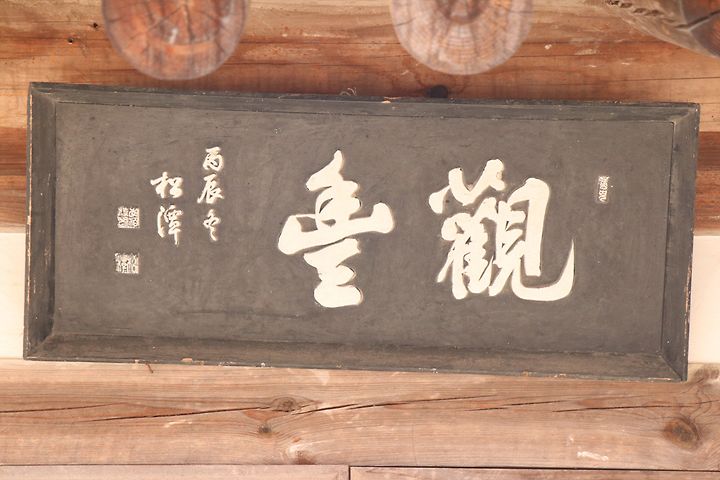 觀豊
丙辰冬
松潭